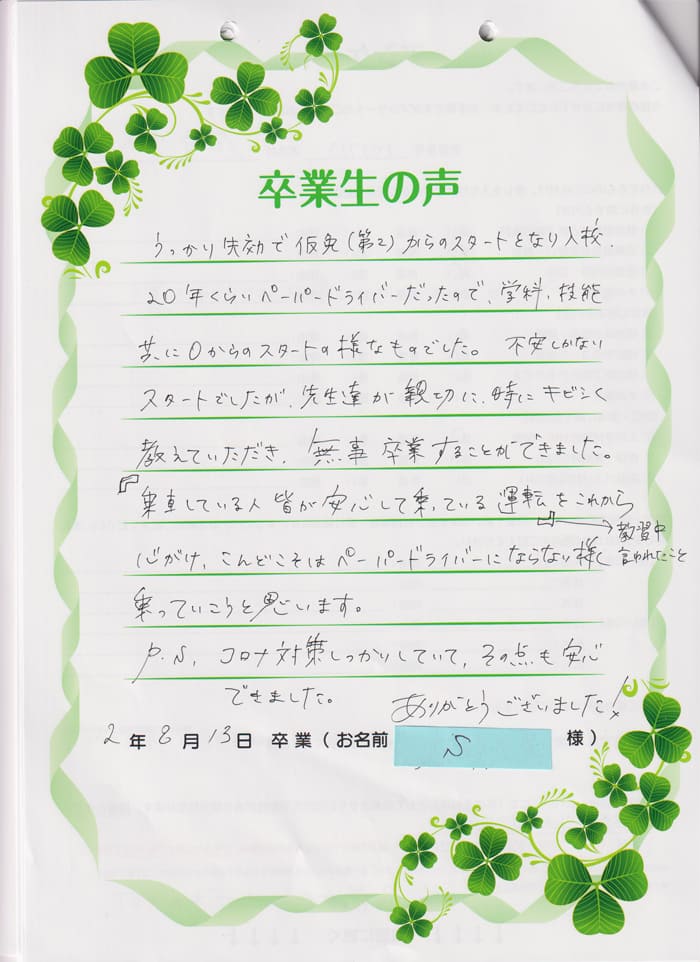 卒業生の声
うっかり失効で仮免(第2)からのスタートとなり入校.
20年くらいペーパードライバーだったので、学科、技能
共に0からのスタートの様なものでした。 不安しかない
スタートでしたが、先生達が親切に、時にキビシく
教えていただき、無事卒業することができました。
「乗車している人皆が安心して乗っている運転」をこれから
→教習中
言われたこと
心がけ、こんどこそはペーパードライバーにならない様に
乗っていこうと思います。
P.S. コロナ対策しっかりしていて、その点も安心
できました。 ありがとうございました!
2年8月13日 卒業(お名前 S 様)